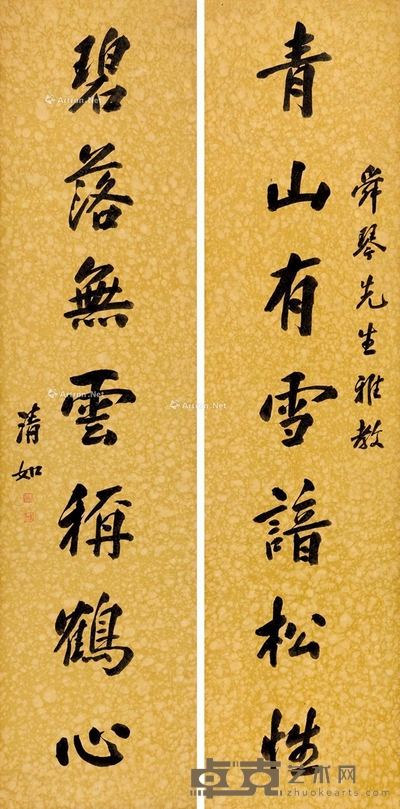 青山有雪諳松性
舜琴先生雅教
碧落無雲稱鶴心
清如
Artron.Net
Artron.Net
Artron.Net
Artron.Net
卓克艺术网
zhuokearts.com